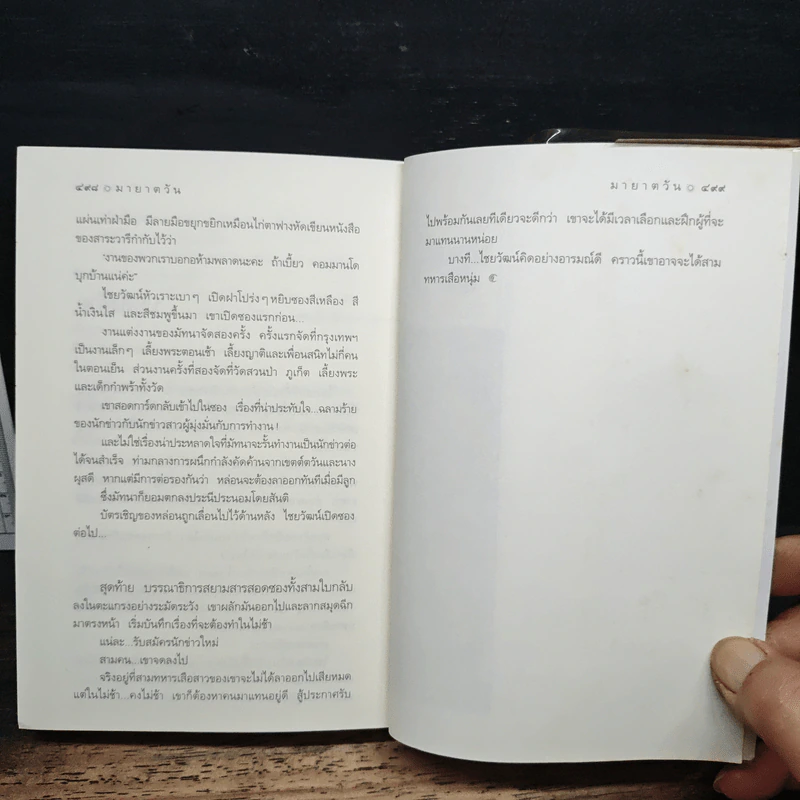 ๔๙๘ ๏ มายาตวัน
แผ่นเท่าฝ่ามือ มีลายมือขยุกขยิกเหมือนไก่ตาฟางหัดเขียนหนังสือ
ของสาระวารีกำกับไว้ว่า
"งานของพวกเราบอกอห้ามพลาดนะคะ ถ้าเบี้ยว คอมมานโด
บุกบ้านแน่ค่ะ"
ไชยวัฒน์หัวเราะเบาๆ เปิดฝาโปร่งๆ หยิบซองสีเหลือง สี
น้ำเงินใส และสีชมพูขึ้นมา เขาเปิดซองแรกก่อน...
งานแต่งงานของมัทนาจัดสองครั้ง ครั้งแรกจัดที่กรุงเทพฯ
เป็นงานเล็กๆ เลี้ยงพระตอนเช้า เลี้ยงญาติและเพื่อนสนิทไม่กี่คน
ในตอนเย็น ส่วนงานครั้งที่สองจัดที่วัดสวนป่า ภูเก็ต เลี้ยงพระ
และเด็กกำพร้าทั้งวัด
เขาสอดการ์ดกลับเข้าไปในซอง เรื่องที่น่าประทับใจ...ฉลามร้าย
ของนักข่าวกับนักข่าวสาวผู้มุ่งมั่นกับการทำงาน!
และไม่ใช่เรื่องน่าประหลาดใจที่มัทนาจะรั้นทำงานเป็นนักข่าวต่อ
ได้จนสำเร็จ ท่ามกลางการผนึกกำลังคัดค้านจากเขตต์ตวันและนาง
ผุสดี หากแต่มีการต่อรองกันว่า หล่อนจะต้องลาออกทันทีเมื่อมีลูก
ซึ่งมัทนาก็ยอมตกลงประนีประนอมโดยสันติ
บัตรเชิญของหล่อนถูกเลื่อนไปไว้ด้านหลัง ไชยวัฒน์เปิดซอง
ต่อไป...
สุดท้าย บรรณาธิการสยามสารสอดซองทั้งสามใบกลับ
ลงในตะแกรงอย่างระมัดระวัง เขาผลักมันออกไปและลากสมุดฉีก
มาตรงหน้า เริ่มบันทึกเรื่องที่จะต้องทำในไม่ช้า
แน่ละ...รับสมัครนักข่าวใหม่
สามคน...เขาจดลงไป
จริงอยู่ที่สามทหารเสือสาวของเขาจะไม่ได้ลาออกไปเสียหมด
แต่ในไม่ช้า...คงไม่ช้า เขาก็ต้องหาคนมาแทนอยู่ดี สู้ประกาศรับ
มายาตวัน ๏ ๔๙๙
ไปพร้อมกันเลยทีเดียวจะดีกว่า เขาจะได้มีเวลาเลือกและฝึกผู้ที่จะ
มาแทนนานหน่อย
บางที...ไชยวัฒน์คิดอย่างอารมณ์ดี คราวนี้เขาอาจจะได้สาม
ทหารเสือหนุ่ม